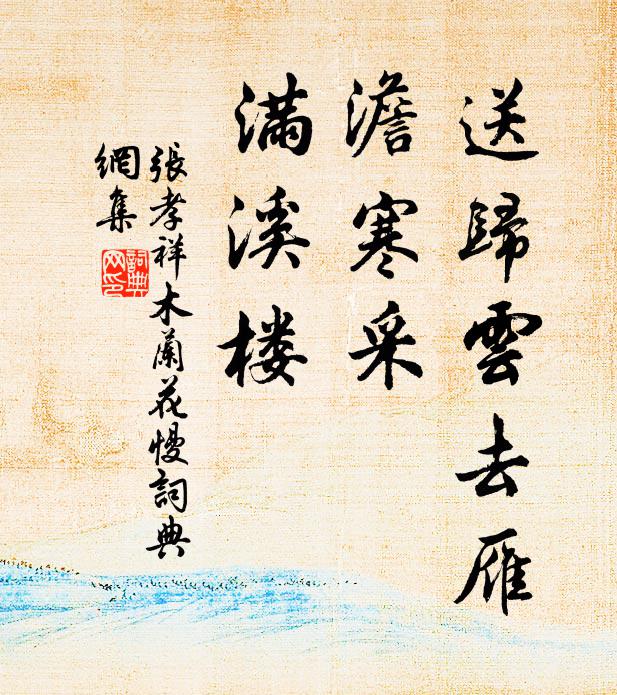 送歸雲去雁
澹寒采
滿溪楼
張孝祥木蘭花慢詞典
網集
詞典
网印